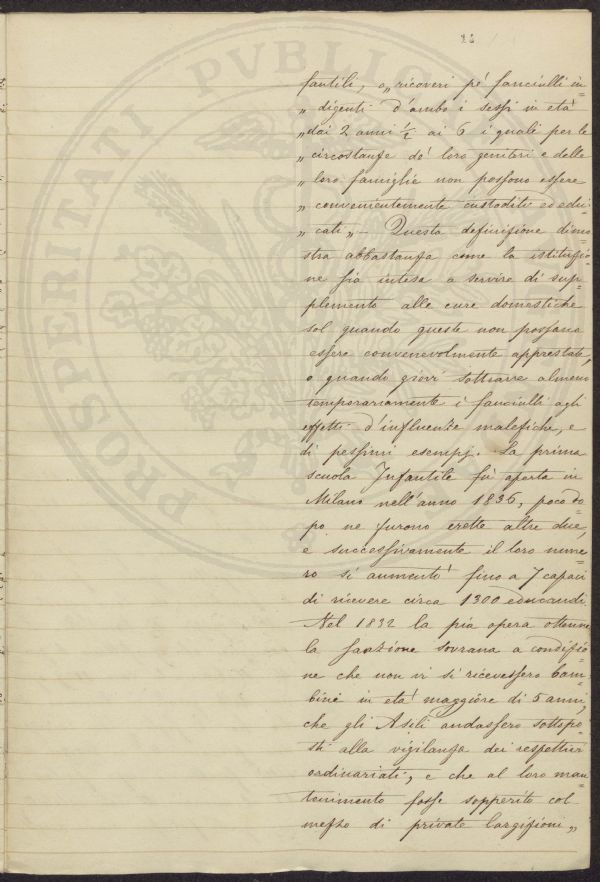 26
fantili, o „ ricoveri pé fanciulli in=
„ digenti d'ambo i sessi in età
„ dai 2 anni ½ ai 6 i quali per le
„ circostanze de' loro genitori e delle
„ loro famiglie non possono essere
„ convenientemente custoditi ed edu=
„ cati „ - Questa definizione dimo=
stra abbastanza come la istituzio=
ne sia intesa a servire di sup=
plemento alle cure domestiche
sol quando queste non possano
essere convenevolmente apprestate,
o quando giovi sottrarre almeno
temporariamente i fanciulli agli
effetti d'influenze malefiche, e
di pessimi esempj. La prima
scuola Infantile fù aperta in
Milano nell'anno 1836, poco do=
po ne furono erette altre due,
e successivamente il loro nume=
ro si aumentò fino a 7 capaci
di ricevere circa 1300 educandi.
Nel 1832 la pia opera ottenne
la sanzione sovrana a condizio=
ne che non vi si ricevessero bam=
bini in età maggiore di 5 anni,
che gli Asili andassero sottopo=
sti alla vigilanza dei respettivi
ordinariati, e che al loro man=
tenimento fosse sopperito col
mezzo di private largizioni „
PROSPERITATI PVBLICAE